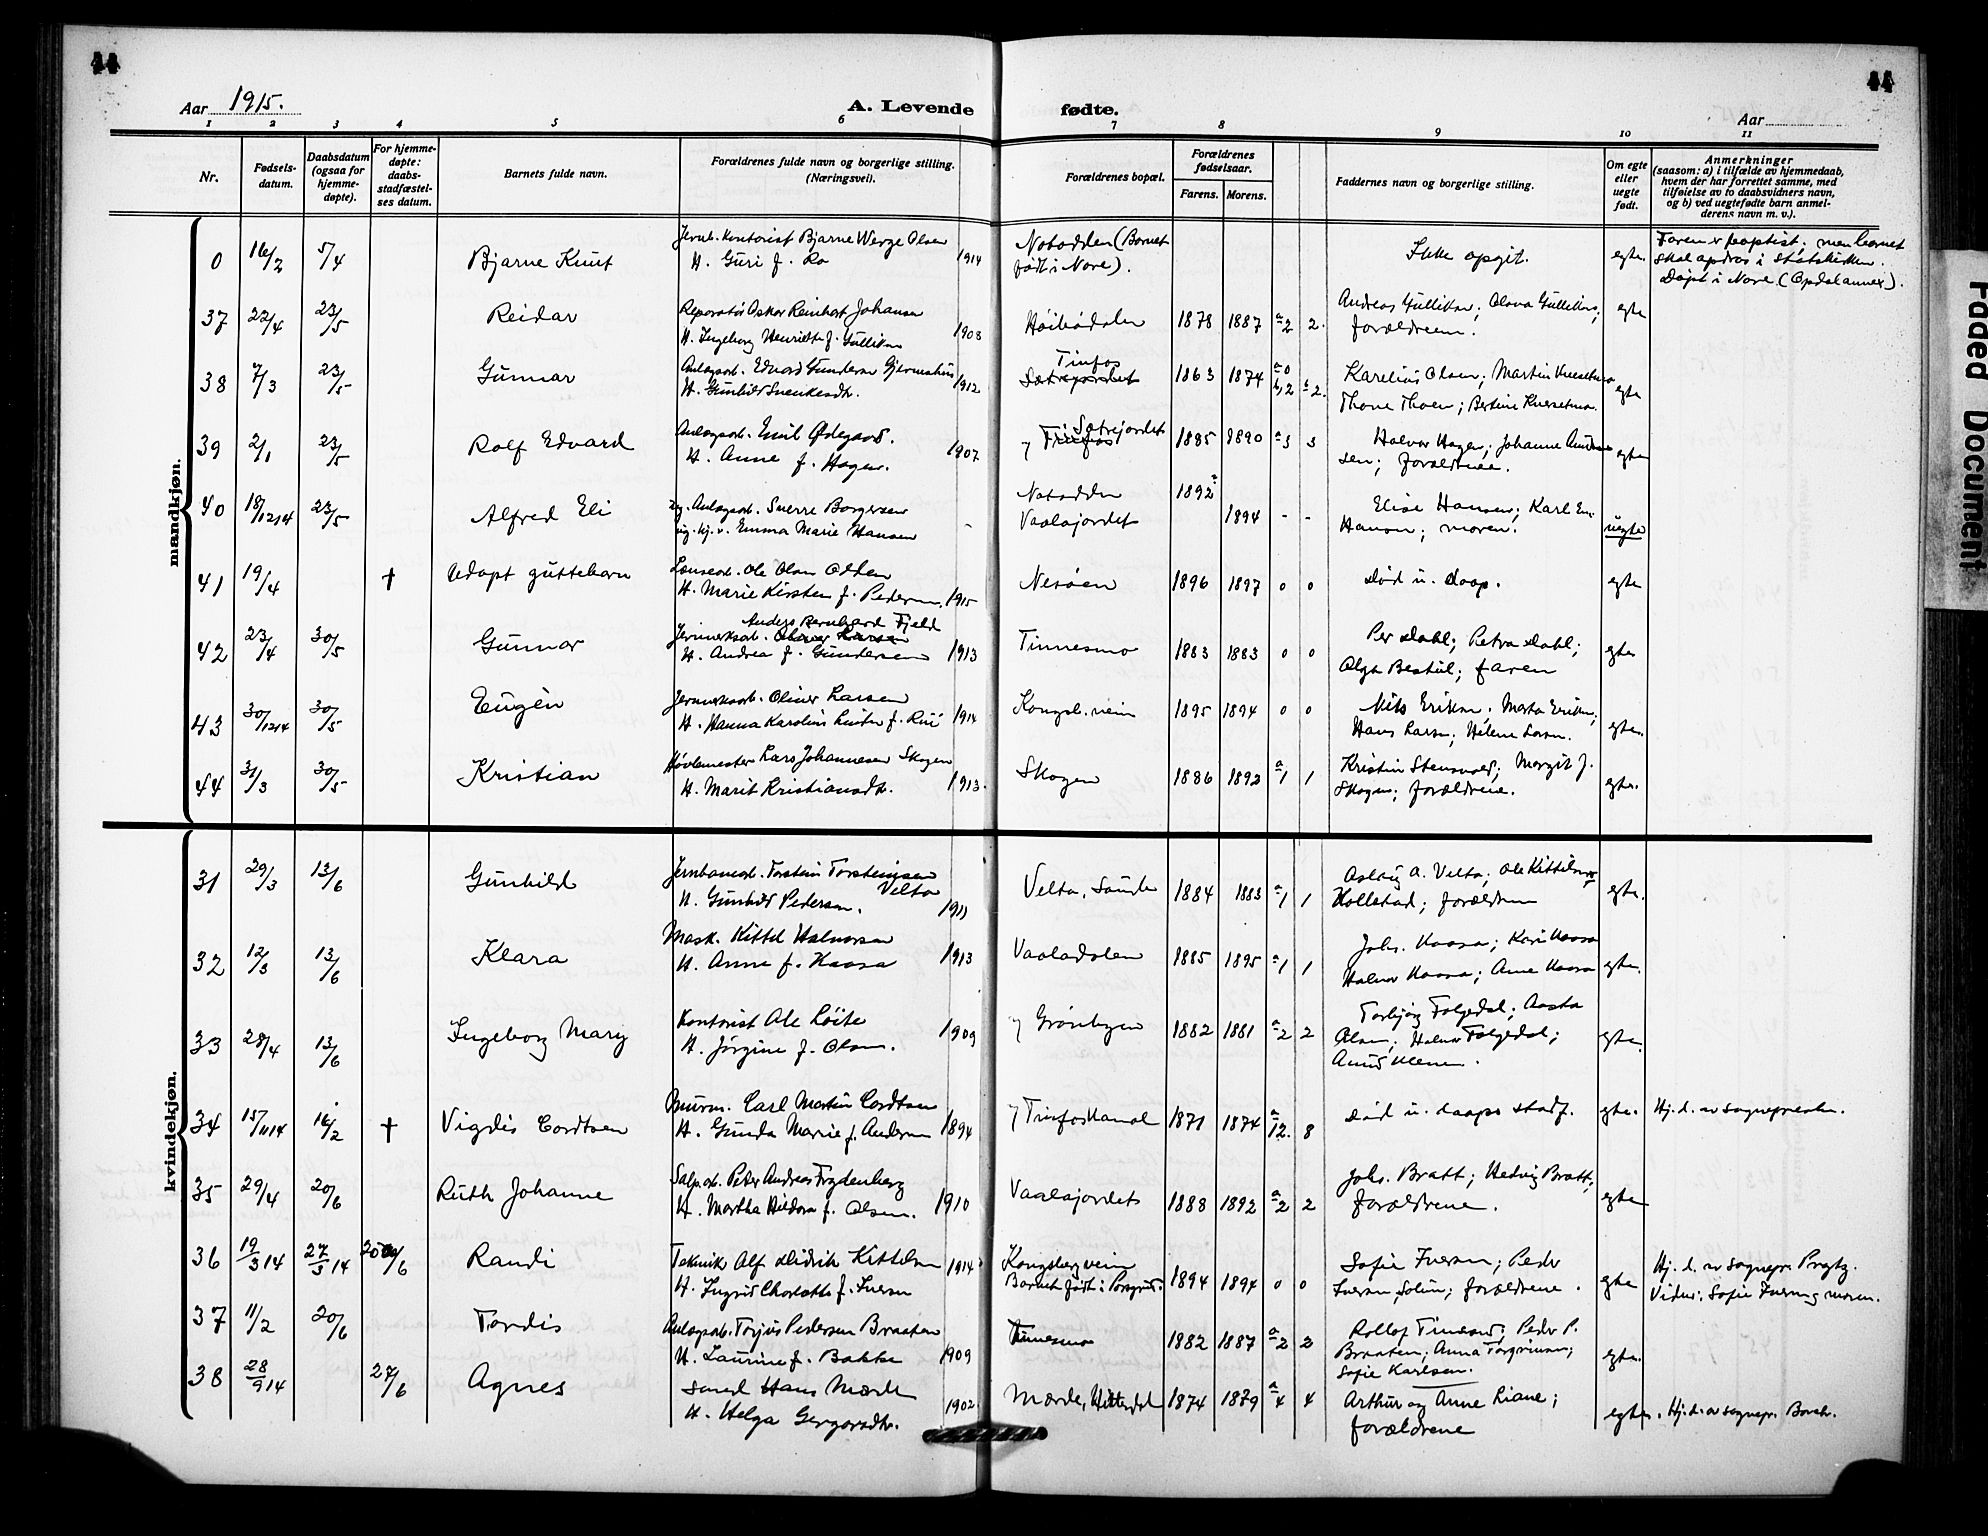 44
44
Aar 1915.
A. Levende fødte.
Aar
1 2 3 4 5 6 7 8 9 10 11
Nr.
Fødsels-
datum.
Daabsdatum
(ogsaa for
hjemme-
døpte).
For hjemme-
døpte:
daabs-
stadfæstel-
ses datum.
Barnets fulde navn.
Forældrenes fulde navn og borgerlige stilling.
(Næringsvei).
Forældrenes bopæl.
Forældrenes
fødselsaar.
Farens. Morens.
Faddernes navn og borgerlige stilling.
Om egte
eller
uegte
født.
Anmerkninger
(saasom: a) i tilfælde av hjemmedaab,
hvem der har forrettet samme, med
tilføielse av to daabsvidners navn,
og b) ved uegtefødte barn anmel-
derens navn m. v.).
mandkjøn.
0 16/2 5/4 Bjarne Knut
Jernb. kontorist Bjarne Werge Olsen
H. Guri f. Ro 1914
Notodden (Barnet
født i Nore).
Ikke opgit. egte.
Faren er baptist, men barnet
skal opdras i statskirken.
Døpt i Nore (Opdal annex).
37 22/4 23/5 Reidar
Reparatør Oskar Reinhart Johansen
H. Ingeborg Henriette f. Gulliksen 1908
Høibødalen 1878 1887 a 2 2.
Andreas Gulliksen; Olava Gulliksen;
forældrene. egte
38 7/3 23/5 Gunnar
Anlægsarb. Edvard Gundersen
H. Gunhild Svenkesdtr. 1912
Tinfos
Sætrejordet 1863 1874 a 0 b, 2 b 2.
Karelius Olsen; Martin
Thone Thoen; Bertine egte
39 2/1 23/5 Rolf Edvard
Anlægsarb. Emil Ødegaard.
H. Anne f. Hagen. 1907
Sætrejordet
Tinfos 1885 1890 a 3 3
Halvor Hagen; Johanne Ander-
sen; forældrene. egte
40 18/12 14 23/5 Alfred Eli
Ug. Anlægsarb. Sverre Borgersen
ug. kj. v. Emma Marie Hansen -
Notodden 1892
Vaalajordet 1894 - -
Elise Hansen; Karl Em.
Hansen; moren. uegte
41 19/4 † Udøpt guttebarn
Lænsearb. Ole Olsen
H. Marie Kirsten f. Pedersen 1915
Nesøen 1896 1897 0 0
Død u. daap. egte
42 23/4 30/5 Gunnar
Anders Bernhard Fjeld
Jernverksarb. Oliver Larsen
H. Andrea f. Gundersen 1913
Tinnesmo 1883 1883 0 0
Per Dahl; Petra Dahl;
Olga Bestul; faren egte
43 30/12 14 30/5 Eugèn
Jernverksarb. Oliver Larsen
H. Hanna Karoline f. Rui 1914
Kongsb. veien 1895 1894 0 0
Nils Eriksen. Marta Eriksen;
Hans Larsen; Helene Larsen. egte.
44 31/3 30/5 Kristian
Høvlemester Lars Johannesen Skogen
H. Marit Kristiansdtr. 1913.
Skogen 1886 1892 a 1 1
Kristine; Margit J.
Skogen; forældrene. egte.
kvindekjøn.
31 29/3 13/6 Gunhild
Jernbanearb. Torstein Torsteinsen
Velta
H. Gunhild Pedersen. 1911
Velta, Saude 1884 1883 a 1 1
Aslaug A. Velta; Ole Kittilsen
Hollstad; forældrene egte.
32 12/3 13/6 Klara
Mask. Kittil Halvorsen
H. Anne f. Haasa 1913
Vaaladalen 1885 1895 a 1 1
Johs. Haasa; Kari Haasa
Halvor Haasa; Anne Haasa egte.
33 28/4 13/6 Ingeborg Mary
Kontorist Ole Løite
H. Jørgine f. Olsen. 1909
Grønbyen 1882 1881 a 2 2
Torbjørg Folgedal; Aasta
Olsen; Halvor Folgedal;
egte.
34 15/11 14 16/2 † Vigdis Cordtsen
Murm. Carl Martin Cordtsen
H. Gunda Marie f. Andersen 1894
Tinfos Kanal 1871 1874 a 12. 8
Død u. daaps stadf. egte.
Hj. d. av sognepresten.
35 29/4 20/6 Ruth Johanne
Salp. arb. Peter Andreas Frydenberg
H. Martha Hildora f. Olsen. 1910
Vaalajordet 1888 1892 a 2 2
Johs. Bratt; Hedvig Bratt;
forældrene. egte
36 19/3 14 27/3 14 20/6 Randi
Tekniker Alf Didrik Kittelsen 1914
H. Ingrid Charlotte f. Iversen
Kongsbergveien
Barnet født i Porsgrund. 1894 1894 0 0
Sofie Iversen; Peder
Iversen, Solum; forældrene. egte
Hj. d. av sognepr.
Vidner: Sofie Iversen og moren.
37 11/2 20/6 Tordis
Anlægsarb. Torjus Pedersen Braaten
H. Laurine f. Bakke 1909
Tinnesmo 1882 1887 a 2 2
Rollof Tinesand; Peder P.
Braaten; Anna Torgrimsen;
Sofie Karlsen. egte.
38 28/9 14 27/6 Agnes
Smed Hans Mærde
H. Helga Gergarsdtr. 1902
Mærde, Hitterdal 1874 1889 a 4 4
Arthur og Anne Liane;
forældrene egte.
Hj. d. av sognepr. Borch.
Faded Document